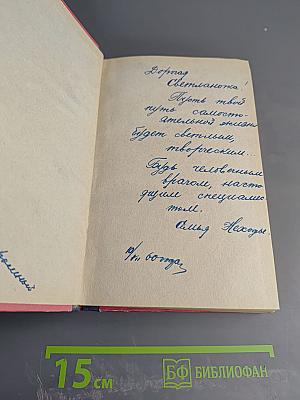 Дорогая
Светланочка!
Пусть твой
путь самосто-
ятельной жизни
будет светлым,
творческим...
Будь человечным
врачом, насто
ящим специалис
том.
Семья
15 см
БФ БИБЛИОФАН